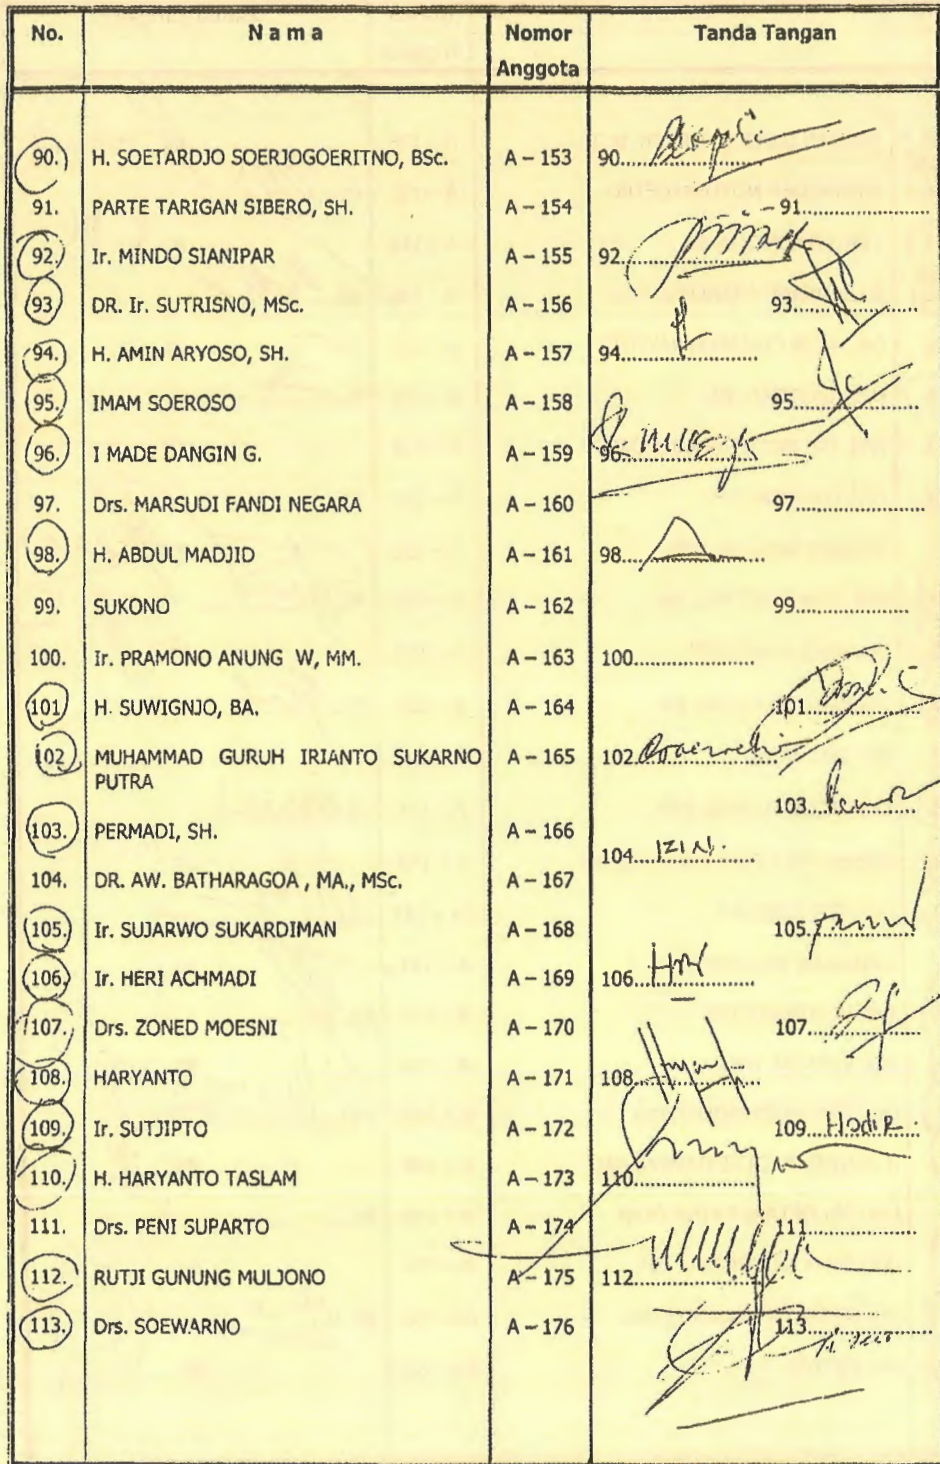 No. N a m a Nomor Anggota Tanda Tangan
90. H. SOETARDJO SOERJOGOERITNO, BSc. A – 153 90
91. PARTE TARIGAN SIBERO, SH. A – 154 91
92. Ir. MINDO SIANIPAR A – 155 92
93. DR. Ir. SUTRISNO, MSc. A – 156 93
94. H. AMIN ARYOSO, SH. A – 157 94
95. IMAM SOEROSO A – 158 95
96. I MADE DANGIN G. A – 159 96
97. Drs. MARSUDI FANDI NEGARA A – 160 97
98. H. ABDUL MADJID A – 161 98
99. SUKONO A – 162 99
100. Ir. PRAMONO ANUNG W, MM. A – 163 100
101 H. SUWIGNJO, BA. A – 164 101
102 MUHAMMAD GURUH IRIANTO SUKARNO A – 165 102
PUTRA
103
103. PERMADI, SH. A – 166
104 IZIN.
104. DR. AW. BATHARAGOA , MA., MSc. A – 167
105. Ir. SUJARWO SUKARDIMAN A – 168 105
106. Ir. HERI ACHMADI A – 169 106
107. Drs. ZONED MOESNI A – 170 107
108. HARYANTO A – 171 108
109. Ir. SUTJIPTO A – 172 109 Hadir
110. H. HARYANTO TASLAM A – 173 110
111. Drs. PENI SUPARTO A – 174 111
112. RUTJI GUNUNG MULJONO A – 175 112
113. Drs. SOEWARNO A – 176 113